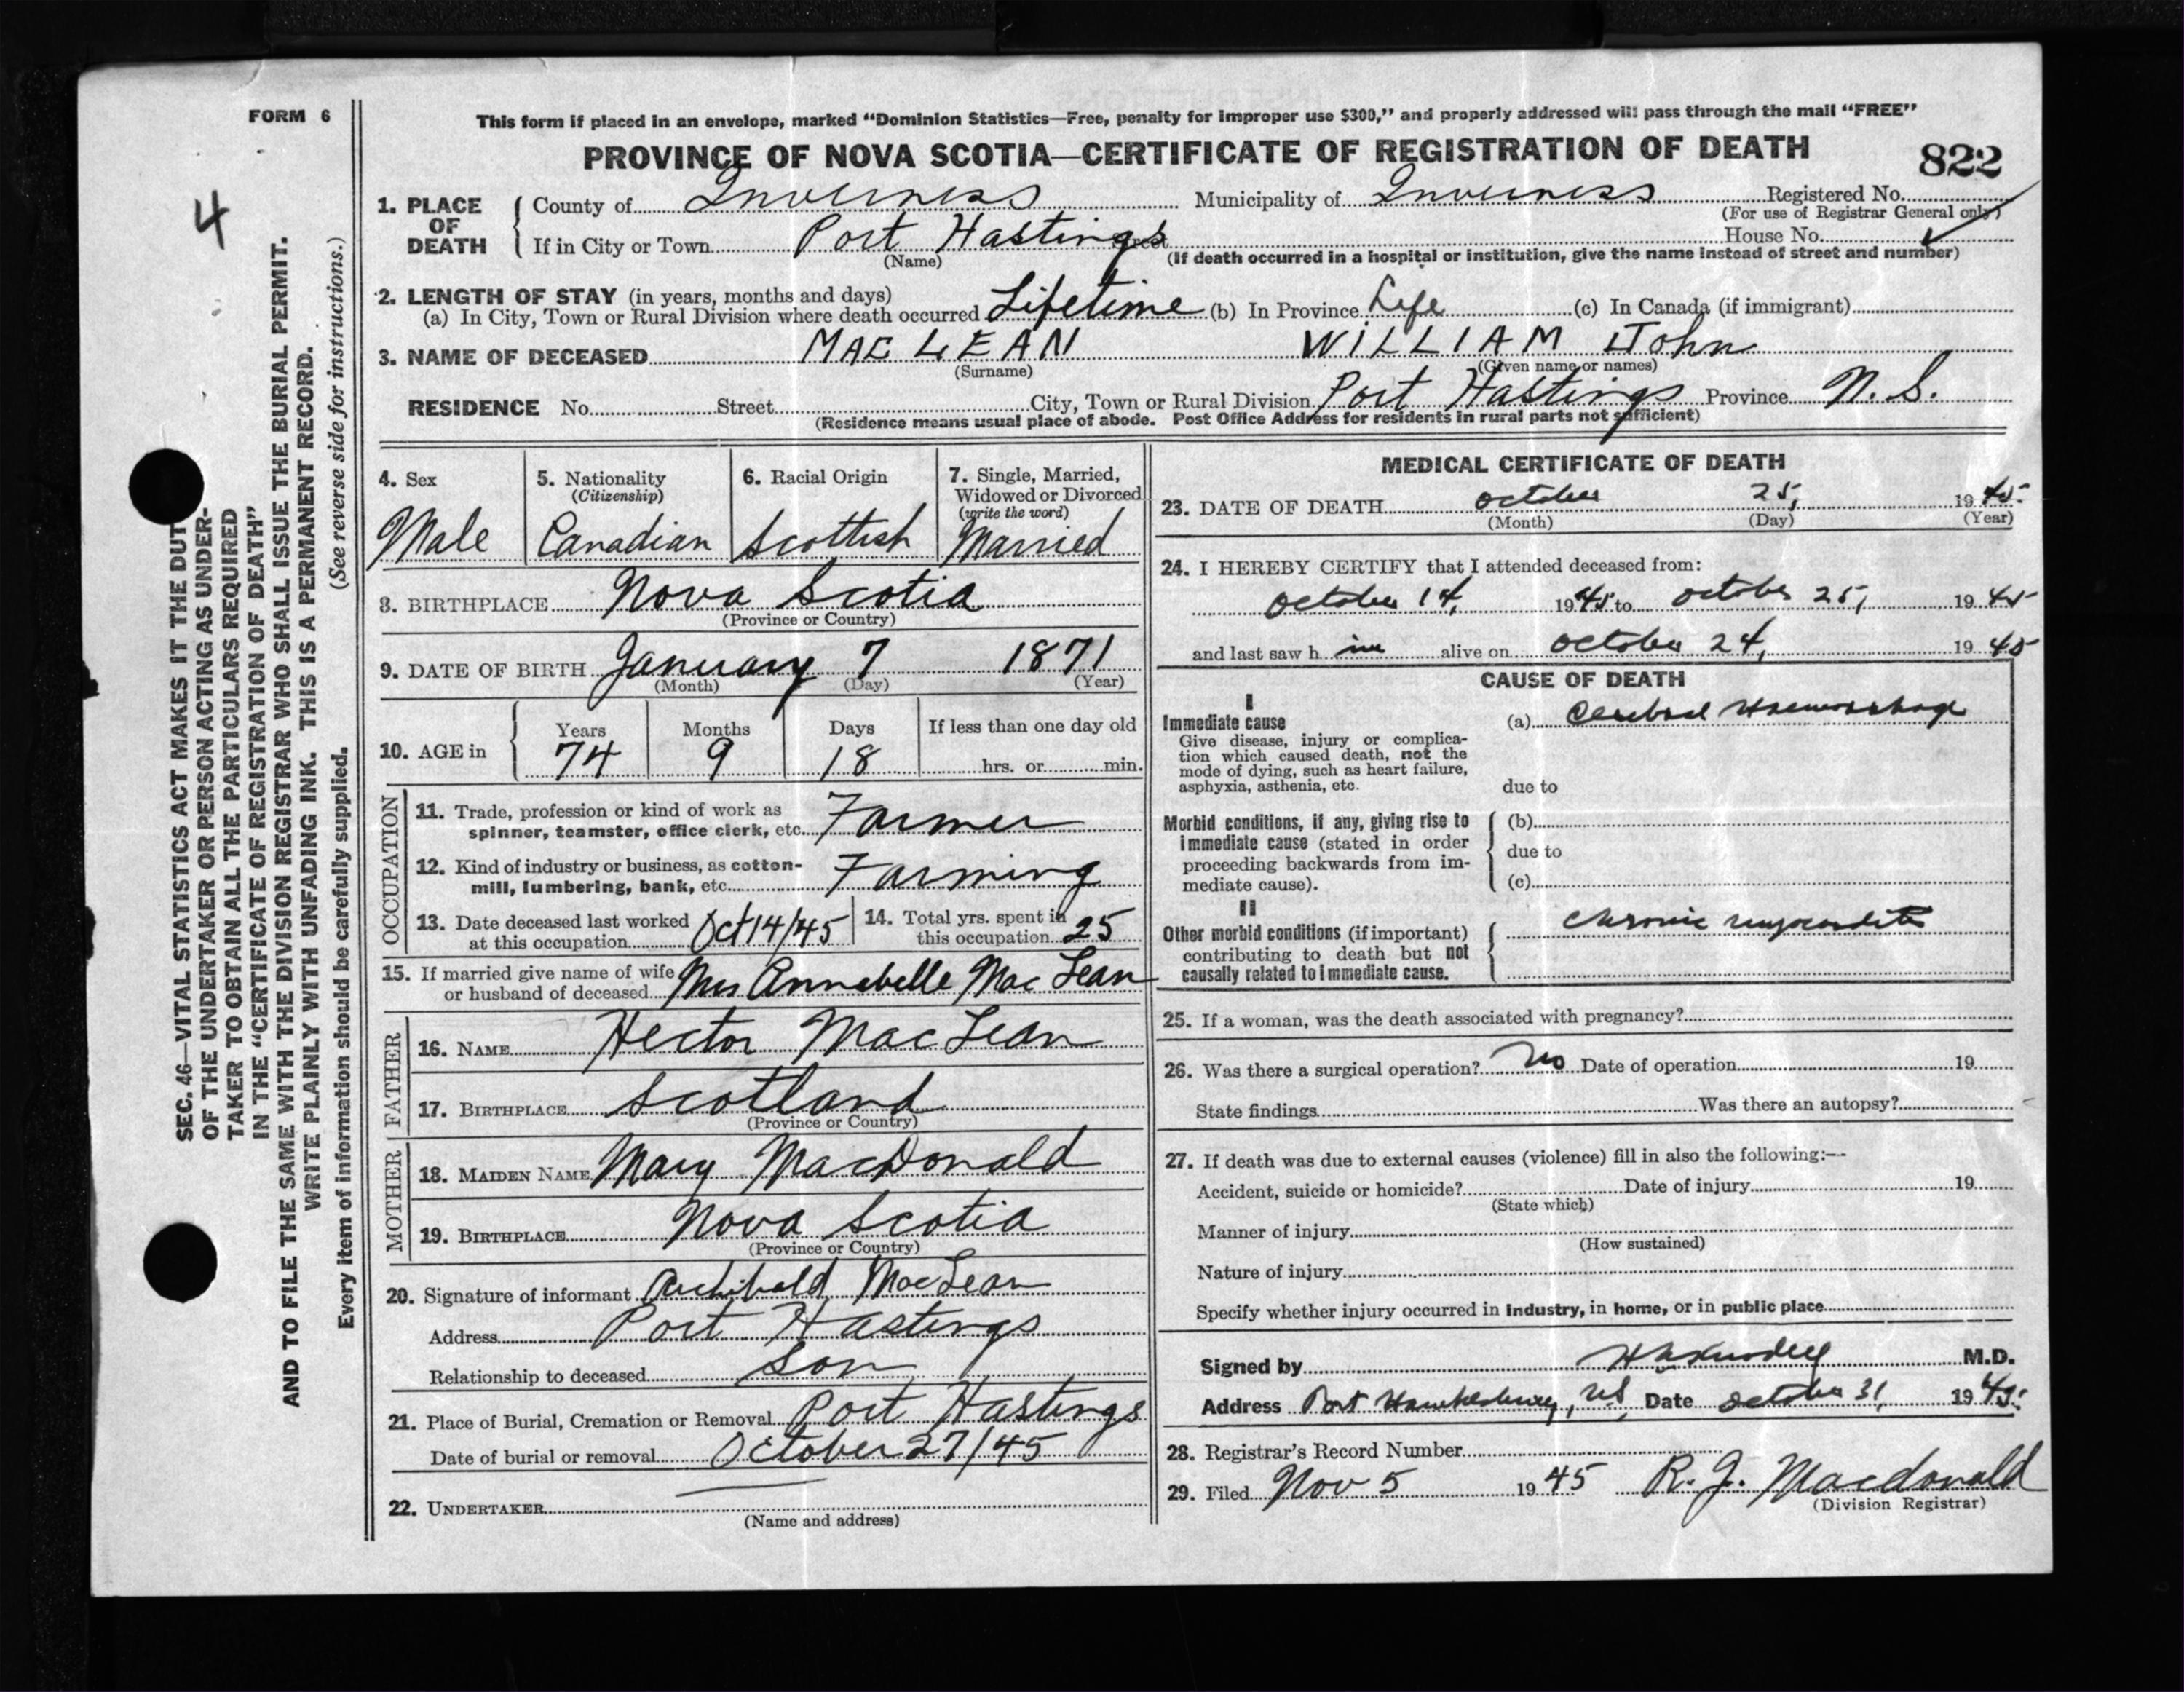 FORM 6
This form if placed in an envelope, marked “Dominion Statistics—Free, penalty for improper use $300,” and properly addressed will pass through the mail “FREE”
PROVINCE OF NOVA SCOTIA—CERTIFICATE OF REGISTRATION OF DEATH
822
4
SEC. 46—VITAL STATISTICS ACT MAKES IT THE DUT
OF THE UNDERTAKER OR PERSON ACTING AS UNDER-
TAKER TO OBTAIN ALL THE PARTICULARS REQUIRED
IN THE “CERTIFICATE OF REGISTRATION OF DEATH”
AND TO FILE THE SAME WITH THE DIVISION REGISTRAR WHO SHALL ISSUE THE BURIAL PERMIT.
WRITE PLAINLY WITH UNFADING INK. THIS IS A PERMANENT RECORD.
(See reverse side for instructions.)
Every item of information should be carefully supplied.
1. PLACE OF DEATH
County of Inverness Municipality of Inverness Registered No.
(For use of Registrar General only)
If in City or Town Port Hastings Street House No.
(Name) (If death occurred in a hospital or institution, give the name instead of street and number)
2. LENGTH OF STAY (in years, months and days)
(a) In City, Town or Rural Division where death occurred Lifetime (b) In Province Life (c) In Canada (if immigrant)
3. NAME OF DECEASED MAC LEAN WILLIAM John
(Surname) (Given name or names)
RESIDENCE No. Street City, Town or Rural Division Port Hastings Province N. S.
(Residence means usual place of abode. Post Office Address for residents in rural parts not sufficient)
4. Sex
Male
5. Nationality
(Citizenship)
Canadian
6. Racial Origin
Scottish
7. Single, Married,
Widowed or Divorced
(write the word)
Married
8. BIRTHPLACE Nova Scotia
(Province or Country)
9. DATE OF BIRTH January 7 1871
(Month) (Day) (Year)
10. AGE in
Years Months Days If less than one day old
74 9 18 hrs. or min.
OCCUPATION
11. Trade, profession or kind of work as
spinner, teamster, office clerk, etc. Farmer
12. Kind of industry or business, as cotton-
mill, lumbering, bank, etc. Farming
13. Date deceased last worked
at this occupation Oct 14/45
14. Total yrs. spent in
this occupation 25
15. If married give name of wife
or husband of deceased Mrs Annabelle Mac Lean
FATHER
16. NAME Hector Mac Lean
17. BIRTHPLACE Scotland
(Province or Country)
MOTHER
18. MAIDEN NAME Mary MacDonald
19. BIRTHPLACE Nova Scotia
(Province or Country)
20. Signature of informant Archibald MacLean
Address Port Hastings
Relationship to deceased Son
21. Place of Burial, Cremation or Removal Port Hastings
Date of burial or removal October 27/45
22. UNDERTAKER
(Name and address)
MEDICAL CERTIFICATE OF DEATH
23. DATE OF DEATH October 25, 1945
(Month) (Day) (Year)
24. I HEREBY CERTIFY that I attended deceased from:
October 14, 1945 to October 25, 1945
and last saw h im alive on October 24, 1945
CAUSE OF DEATH
I
Immediate cause (a) Cerebral Haemorrhage
Give disease, injury or complica-
tion which caused death, not the
mode of dying, such as heart failure,
asphyxia, asthenia, etc. due to
Morbid conditions, if any, giving rise to (b)
immediate cause (stated in order due to
proceeding backwards from im-
mediate cause). (c)
II
Other morbid conditions (if important) Chronic myocarditis
contributing to death but not
causally related to immediate cause.
25. If a woman, was the death associated with pregnancy?
26. Was there a surgical operation? No Date of operation 19
State findings Was there an autopsy?
27. If death was due to external causes (violence) fill in also the following:—
Accident, suicide or homicide? Date of injury 19
(State which)
Manner of injury
(How sustained)
Nature of injury
Specify whether injury occurred in industry, in home, or in public place
Signed by M.D.
Address Port Hawkesbury, NS Date October 31, 1945
28. Registrar’s Record Number
29. Filed Nov 5 1945 R. J. Macdonald
(Division Registrar)